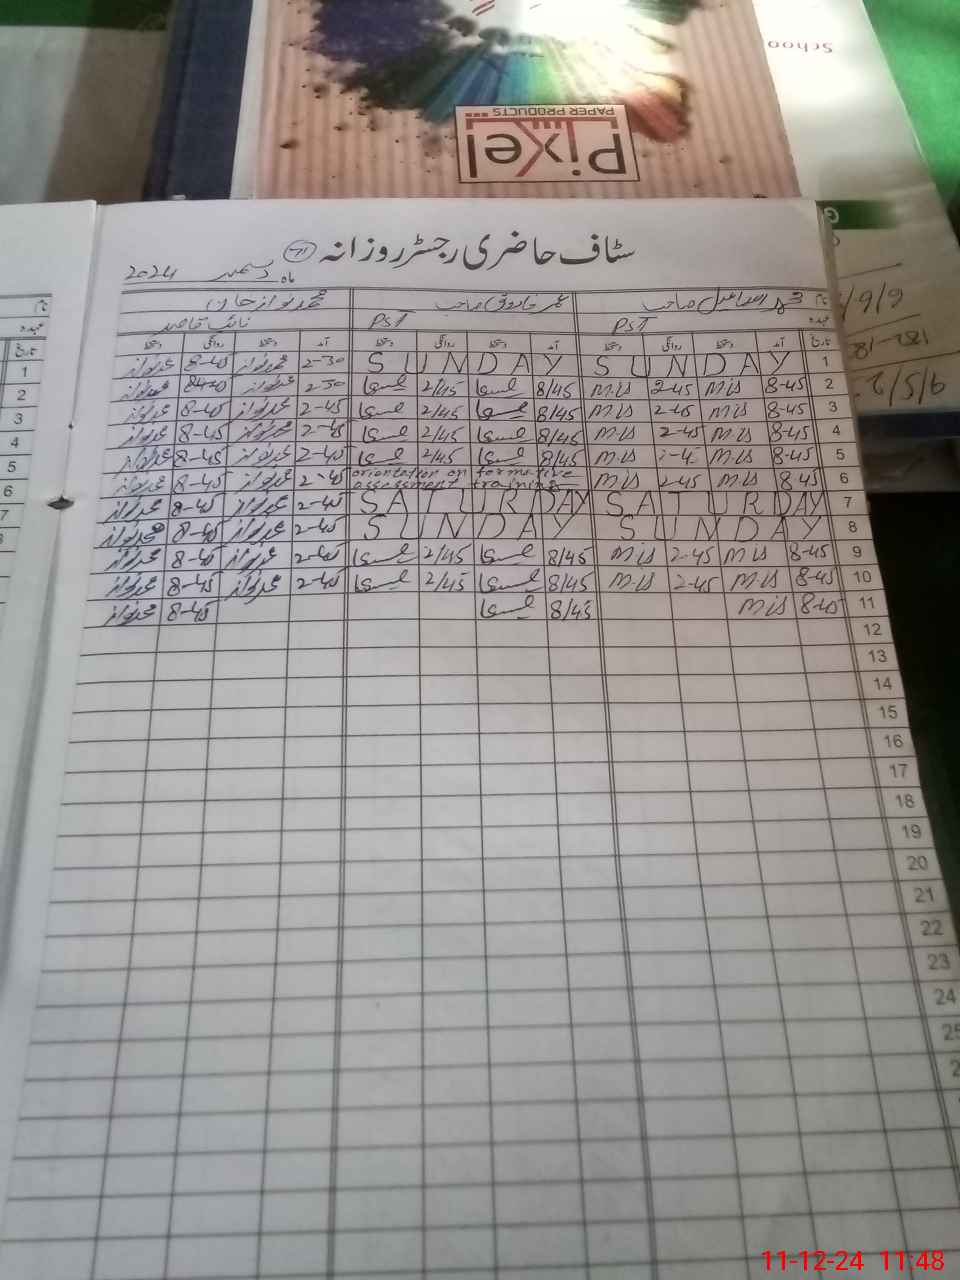 Schoo
PAPER PRODUCTS
Pixel
سٹاف حاضری رجسٹر روزانہ
ماہ دسمبر 2024
نام محمد اسماعیل صاحب عمر فاروق صاحب محمد نواز خان
عہدہ PST PST نائب قاصد
تاریخ آمد دستخط روانگی دستخط آمد دستخط روانگی دستخط آمد دستخط روانگی دستخط
1 SUNDAY SUNDAY 2-30 محمد نواز 8-45 محمد نواز
2 8-45 M.IS 2-45 M.IS 8/45 2/45 2-30 محمد نواز محمد نواز
3 8-45 M.IS 2-45 M.IS 8/45 2/45 2-45 محمد نواز 8-45 محمد نواز
4 8-45 M.IS 2-45 M.IS 8/45 2/45 2-45 محمد نواز 8-45 محمد نواز
5 8-45 M.IS M.IS 8/45 2/45 2-45 محمد نواز 8-45 محمد نواز
6 8-45 M.IS 2-45 M.IS orientation on formative assessment training 2-45 محمد نواز 8-45 محمد نواز
7 SATURDAY SATURDAY 2-45 محمد نواز 8-45 محمد نواز
8 SUNDAY SUNDAY 2-45 محمد نواز 8-45 محمد نواز
9 8-45 M.IS 2-45 M.IS 8/45 2/45 2-45 محمد نواز 8-45 محمد نواز
10 8-45 M.IS 2-45 M.IS 8/45 2/45 2-45 محمد نواز 8-45 محمد نواز
11 8-45 M.IS 8/45 8-45 محمد نواز
12
13
14
15
16
17
18
19
20
21
22
23
24
25
تاریخ
1
2
3
4
5
6
7
11-12-24 11:48